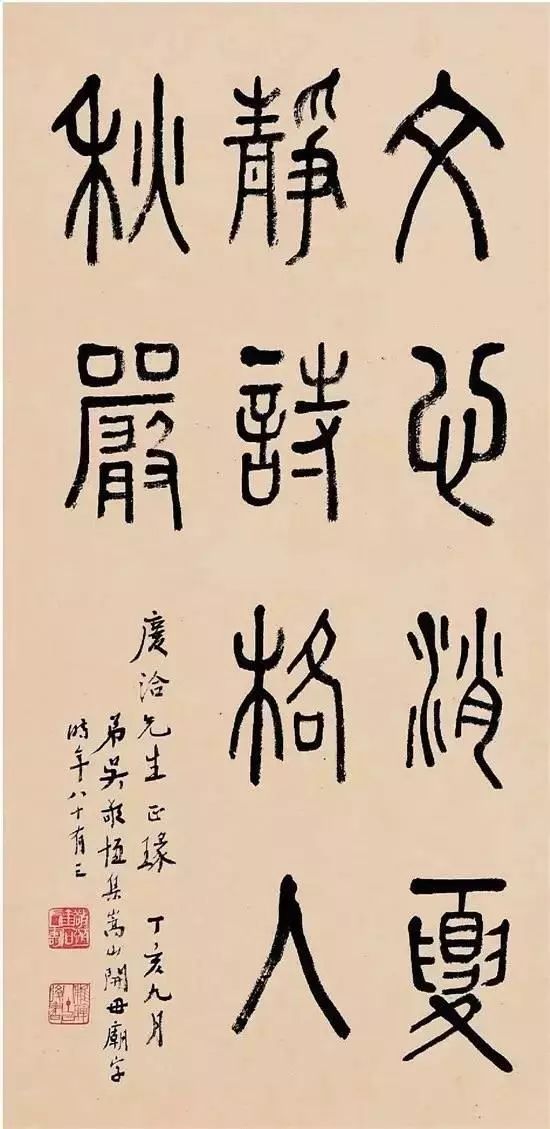 文心消夏
靜詩格人
秋嚴
慶洽先生正瑑 丁亥九月
弟吳敬恆集嵩山開母廟字
時年八十有三